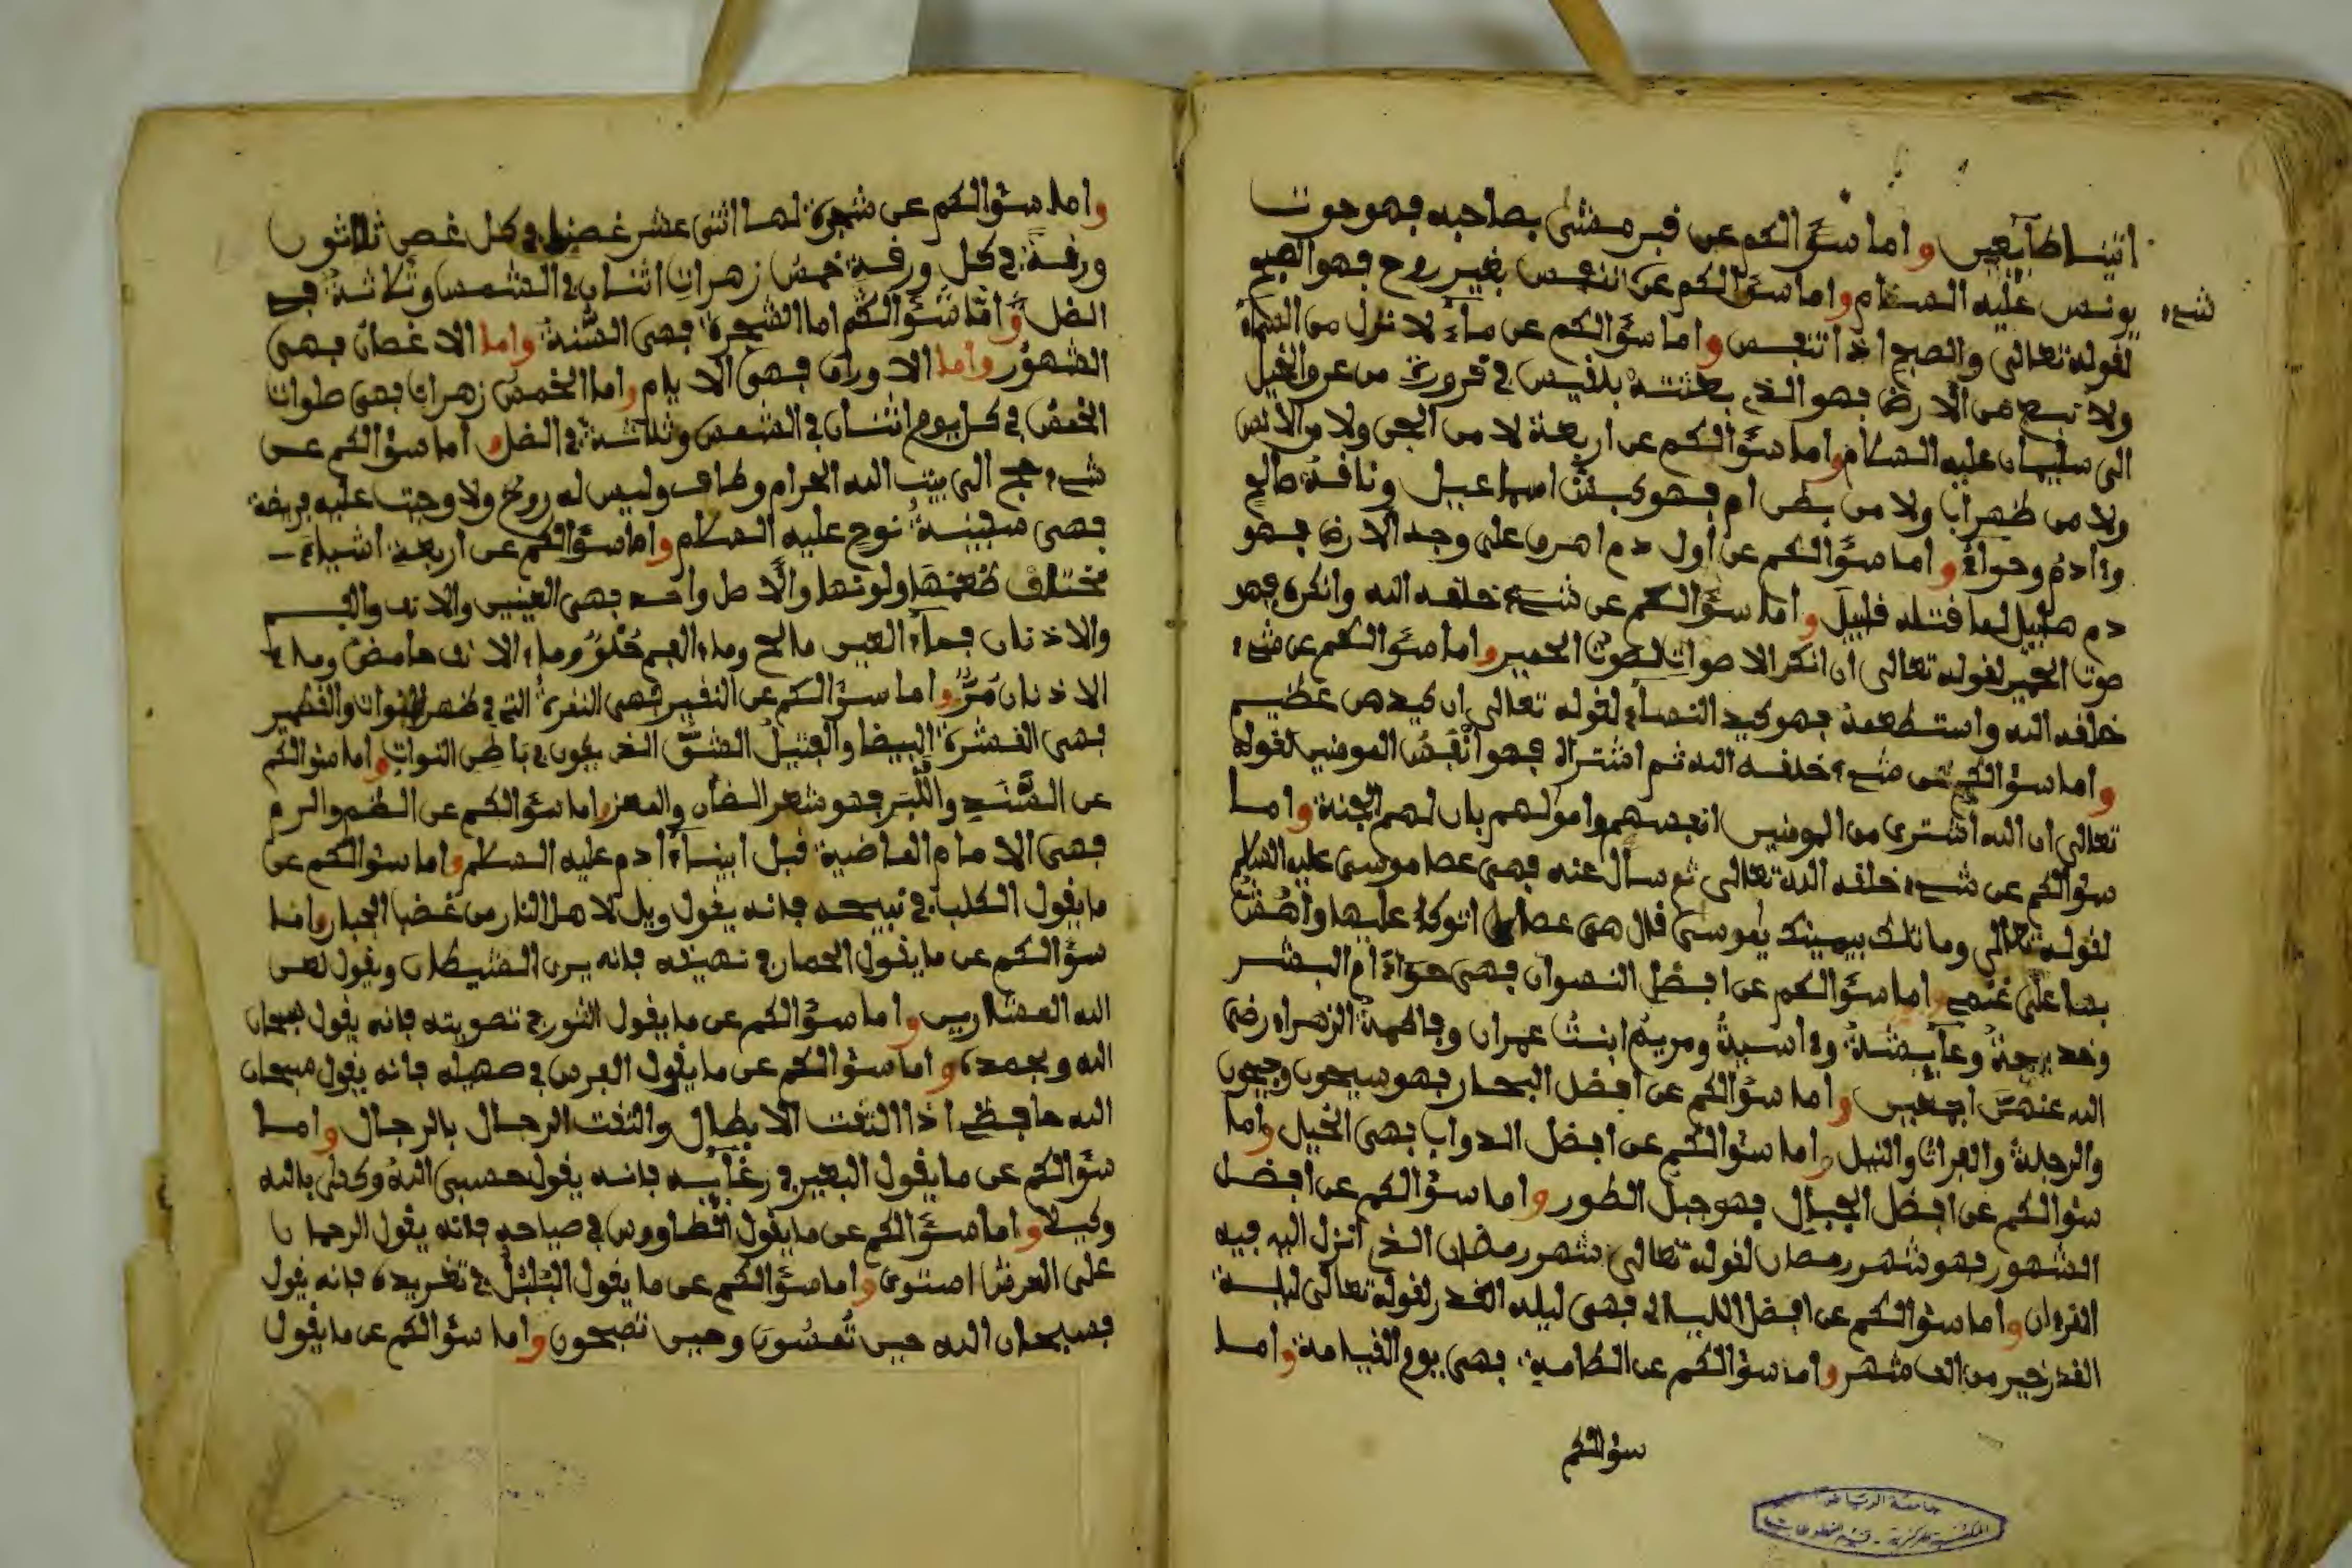 اتينا طايعين واما سؤالكم عن قبر مشى بصاحبه فهو حوت
يونس عليه السلام واما سؤالكم عن النفس بغير روح فهو الصبح
شيء
لقوله تعالى والصبح اذا تنفس واما سؤالكم عن ماء لا نزل من السماء
ولا نبع من الارض فهو الذي بعثته بلقيس في قرورة من عرق الخيل
الى سليمان عليه السلام واما سؤالكم عن اربعة لا من الجن ولا من الانس
ولا من ظهراب ولا من بطن ام فهو كبش اسماعيل وناقة صالح
وءادم وحواء واما سؤالكم عن أول دم اهرق على وجه الارض فهو
دم هابيل لما قتله قابيل واما سؤالكم عن شيء خلقه الله وانكره فهو
صوت الحمير لقوله تعالى ان انكر الاصوات لصوت الحمير واما سؤالكم عن شيء
خلقه الله واستطعمه فهو كيد النساء لقوله تعالى ان كيدهن عظيم
واما سؤالكم عن شيء خلقه الله ثم اشتراه فهو أنفس المومنين لقوله
تعالى ان الله اشترى من المومنين انفسهم واموالهم بان لهم الجنة واما
سؤالكم عن شيء خلقه الله تعالى ثم سال عنه فهي عصا موسى عليه السلام
لقوله تعالى وما تلك بيمينك يموسى قال هي عصاي اتوكا عليها واهش
بها على غنمي واما سؤالكم عن افضل النسوان فهي حواء ام البشر
وخديجة وعايشة وءاسية ومريم ابنت عمران وفاطمة الزهراء رضي
الله عنهن اجمعين واما سؤالكم عن افضل البحار فهو سيحون وجيحون
والدجلة والفرات والنيل واما سؤالكم عن افضل الدواب فهي الخيل واما
سؤالكم عن افضل الجبال فهو جبل الطور واما سؤالكم عن افضل
الشهور فهو شهر رمضان لقوله تعالى شهر رمضان الذي أنزل اليه فيه
القرءان واما سؤالكم عن افضل الليالي فهي ليله القدر لقوله تعالى ليلة
القدر خير من الف شهر واما سؤالكم عن الطامة فهي يوم القيامة واما
سؤالكم
جامعة الرياض
المكتبة المركزية - قسم المخطوطات
واما سؤالكم عن شجرة لها اثنى عشر غصنا في كل غصن ثلاثون
ورقة في كل ورقة خمس زهرات اثنان في الشمس وثلاثة في
الضل واما سؤالكم اما الشجرة فهي السنة واما الاغصان فهي
الشهور واما الاوراق فهي الايام واما الخمس زهرات فهي صلوات
الخمس في كل يوم اثنان في الشمس وثلاثة في الضل واما سؤالكم عن
شيء حج الى بيت الله الحرام وطاف وليس له روح ولا وجبت عليه فريضة
فهي سفينة نوح عليه السلام واما سؤالكم عن اربعة اشياء
مختلف طعمها ولونها والاصل واحد فهي العينين والانف والفم
والاذنان فماء العين مالح وماء الفم حلو وماء الانف حامض وماء
الاذنان مر واما سؤالكم عن النقير فهي النقرة التي في ظهر النوات والقطمير
فهي القشرة البيضا والفتيل الشق الذي يكون في باطن النوات واما سؤالكم
عن السَّبَد واللَّبَد فهو شعر الضأن والمعز واما سؤالكم عن الطم والرم
فهي الامام الماضية قبل ابينا ءادم عليه السلام واما سؤالكم عن
ما يقول الكلب في نبيحه فانه يقول ويل لاهل النار من غضب الجبار واما
سؤالكم عن ما يقول الحمار في نهيقه فانه يرى الشيطان ويقول لعن
الله العشارين واما سؤالكم عن ما يقول الثور في تصويته فانه يقول سبحان
الله وبحمده واما سؤالكم عن ما يقول الفرس في صهيله فانه يقول سبحان
الله حافظي اذا التفت الابطال والتفت الرجال بالرجال واما
سؤالكم عن ما يقول البعير في رغايه فانه يقول حسبي الله وكفى بالله
وكيلا واما سؤالكم عن ما يقول الطاووس في صياحه فانه يقول الرحمان
على العرش استوى واما سؤالكم عن ما يقول البلبل في تغريده فانه يقول
فسبحان الله حين تمسون وحين تصبحون واما سؤالكم عن ما يقول